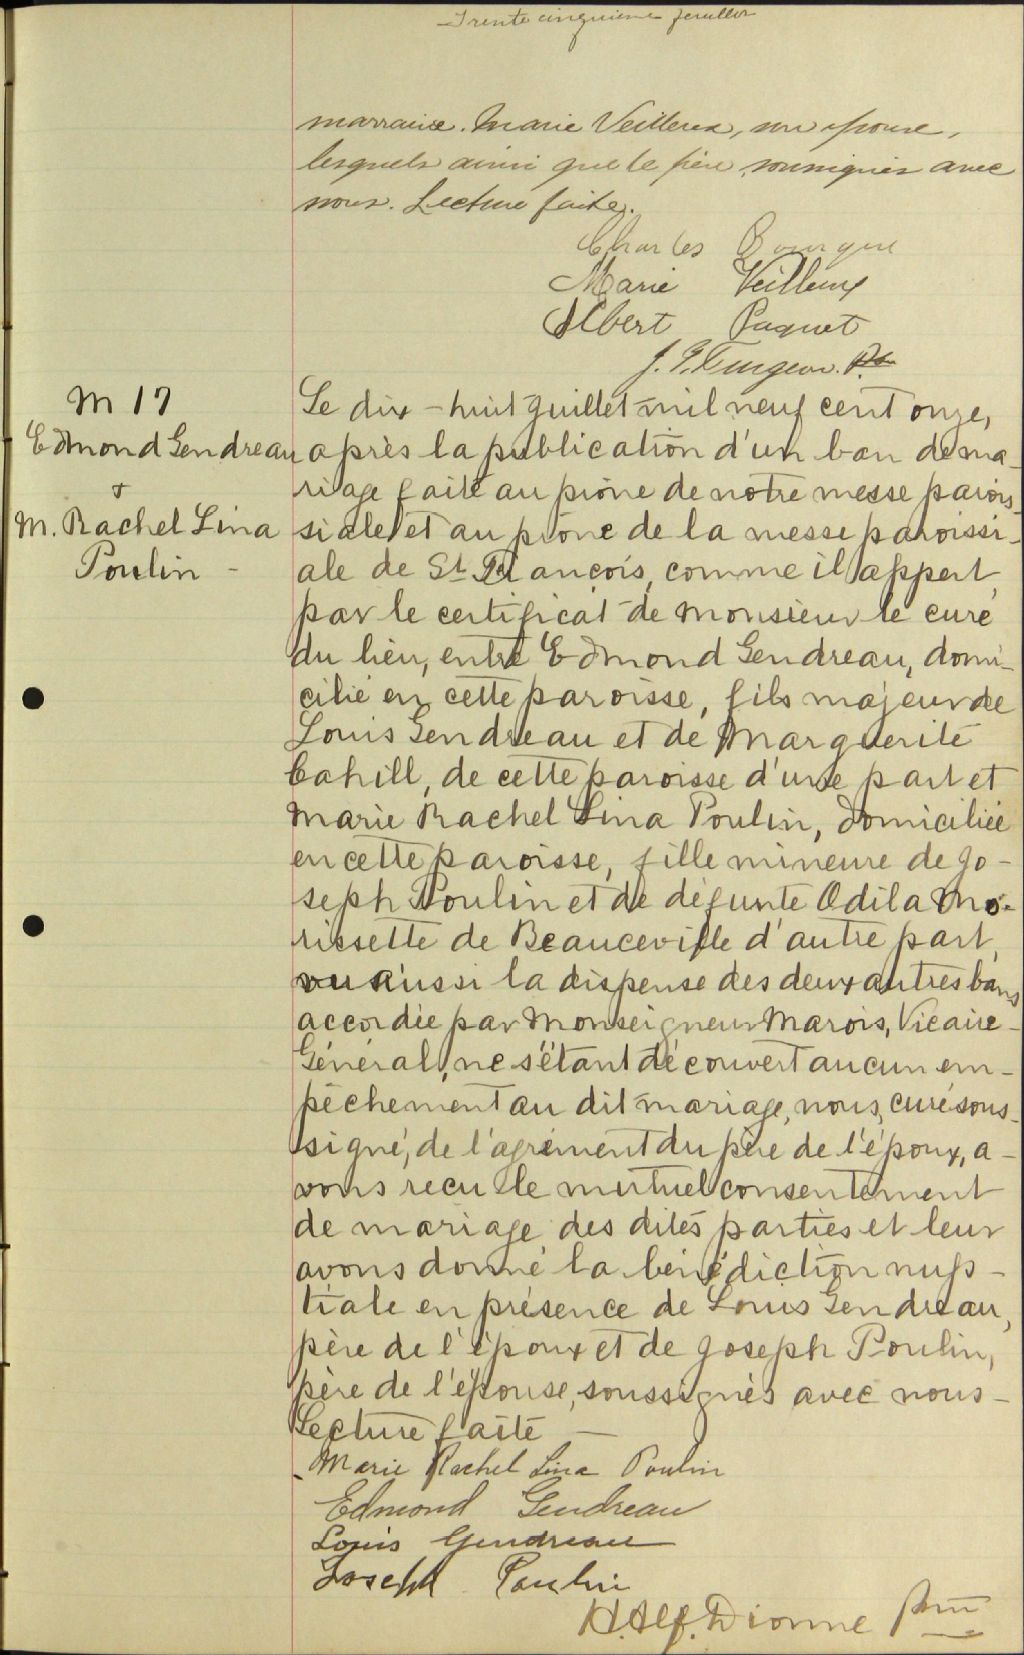 Trente cinquième feuillet
marraine. Marie Veilleux, son épouse,
lesquels ainsi que le père, soussignés avec
nous. Lecture faite.
Charles Bourque
Marie Veilleux
Albert Paquet
J. Turgeon. Ptr
M 17
Edmond Gendreau
+
M. Rachel Lina
Poulin -
Le dix-huit Juillet mil neuf cent onze,
après la publication d'un ban de ma-
riage faite au prône de notre messe parois-
siale et au prône de la messe paroissi-
ale de St François, comme il appert
par le certificat de Monsieur le curé
du lieu, entre Edmond Gendreau, domi-
cilié en cette paroisse, fils majeur de
Louis Gendreau et de Marguerite
Cahill, de cette paroisse d'une part et
Marie Rachel Lina Poulin, domiciliée
en cette paroisse, fille mineure de Jo-
seph Poulin et de défunte Odila Mo-
rissette de Beauceville d'autre part,
vu aussi la dispense des deux autres bans
accordée par Monseigneur Marois, Vicaire-
Général, ne s'étant découvert aucun em-
pêchement au dit mariage, nous, curé sous-
signé, de l'agrément du père de l'époux, a-
vons reçu le mutuel consentement
de mariage des dites parties et leur
avons donné la bénédiction nup-
tiale en présence de Louis Gendreau,
père de l'époux et de Joseph Poulin,
père de l'épouse, soussignés avec nous -
Lecture faite -
Marie Rachel Lina Poulin
Edmond Gendreau
Louis Gendreau
Joseph Poulin
H. Alf. Dionne Ptre